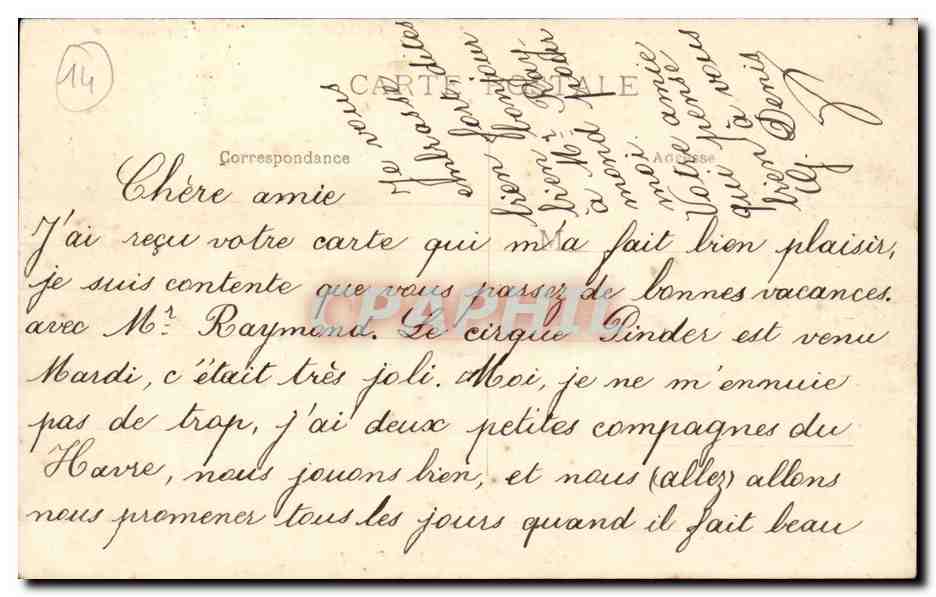 14
CARTE POSTALE
Correspondance
Adresse
M
Chère amie
J'ai reçu votre carte qui m'a fait bien plaisir,
je suis contente que vous passez de bonnes vacances.
avec Mr Raymond. Le cirque Pinder est venu
Mardi, c'était très joli. Moi, je ne m'ennuie
pas de trop, j'ai deux petites compagnes du
Havre, nous jouons bien, et nous (allez) allons
nous promener tous les jours quand il fait beau
Je vous
embrasse
bien fort dites
bien Bonjour
à Mr Ray
mond pour
moi.
Votre amie
qui pense
bien à vous
Denis
CPAPHIL